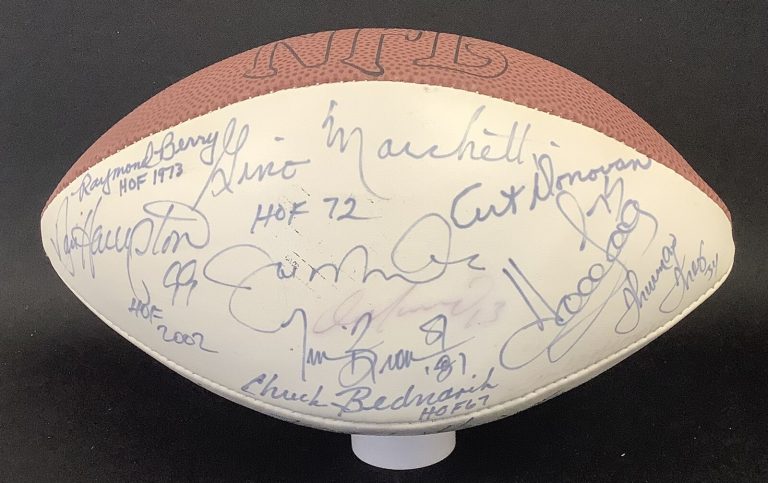 NFL
Raymond Berry
HOF 1973
Gino Marchetti
HOF 72
Art Donovan
Dan Hampton
99
HOF
2002
Tim Brown 81
'87
Chuck Bednarik
HOF 67
Thurman
Thomas 34